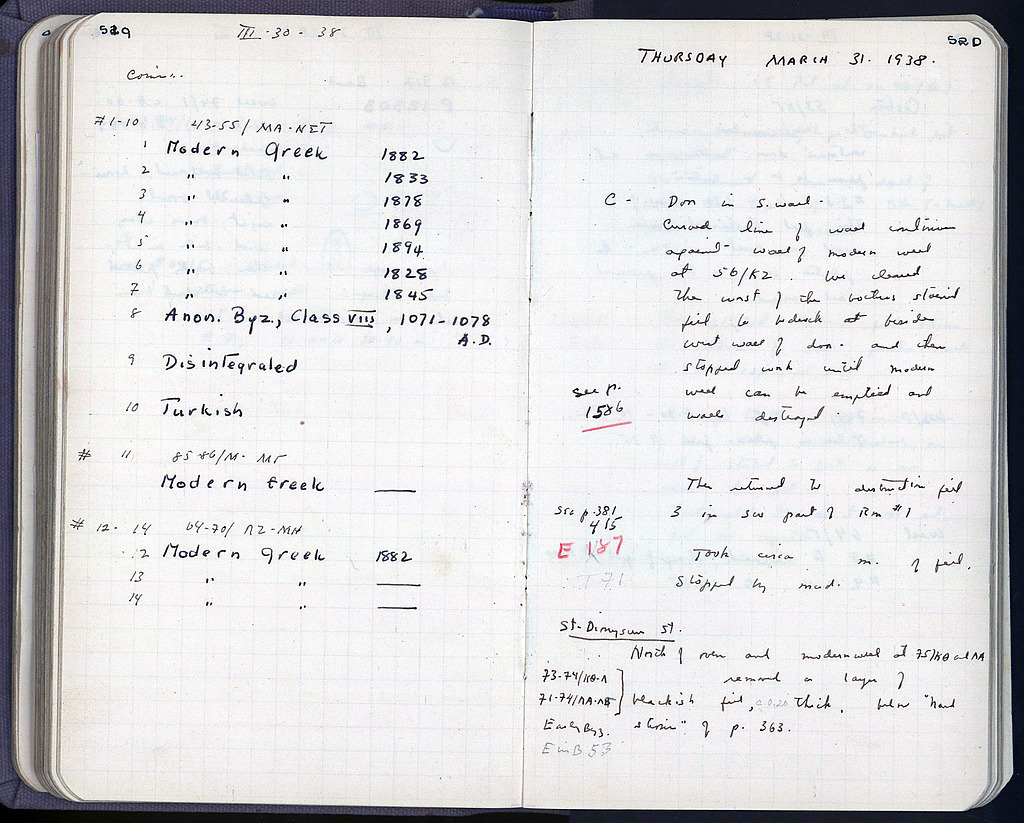 529
III - 30 - 38
Coins.
#1-10 43-55/ MA-NET
1 Modern Greek 1882
2 " " 1833
3 " " 1878
4 " " 1869
5 " " 1894
6 " " 1828
7 " " 1845
8 Anon. Byz., Class VIII, 1071-1078
A.D.
9 Disintegrated
10 Turkish
# 11 85-86/M-
Modern Greek —
# 12-14 64-70/
12 Modern Greek 1882
13 " " —
14 " " —
520
THURSDAY MARCH 31. 1938.
C - Don in S. wall -
Curved line of wall continues
against wall of modern well
at 56/KZ. We cleared
the west of the bothros stained
fill to bedrock at beside
west wall of don. and then
stopped work until modern
well can be emptied and
walls destroyed.
see p.
1586
Then returned to destruction fill
3 in sw part of Rm #1
See p. 381
415
E 187
Took circa m. of fill.
T 71
Stopped by mud.
St. Dionysius St.
North of oven and modern well at 75/ΚΘ and ΛΑ
73-74/ΚΘ-Λ removed a layer of
71-74/ΛΑ-ΛΒ blackish fill, c. 0.20 thick, below "hard
Early Byz. stosis" of p. 363.
E in B 53